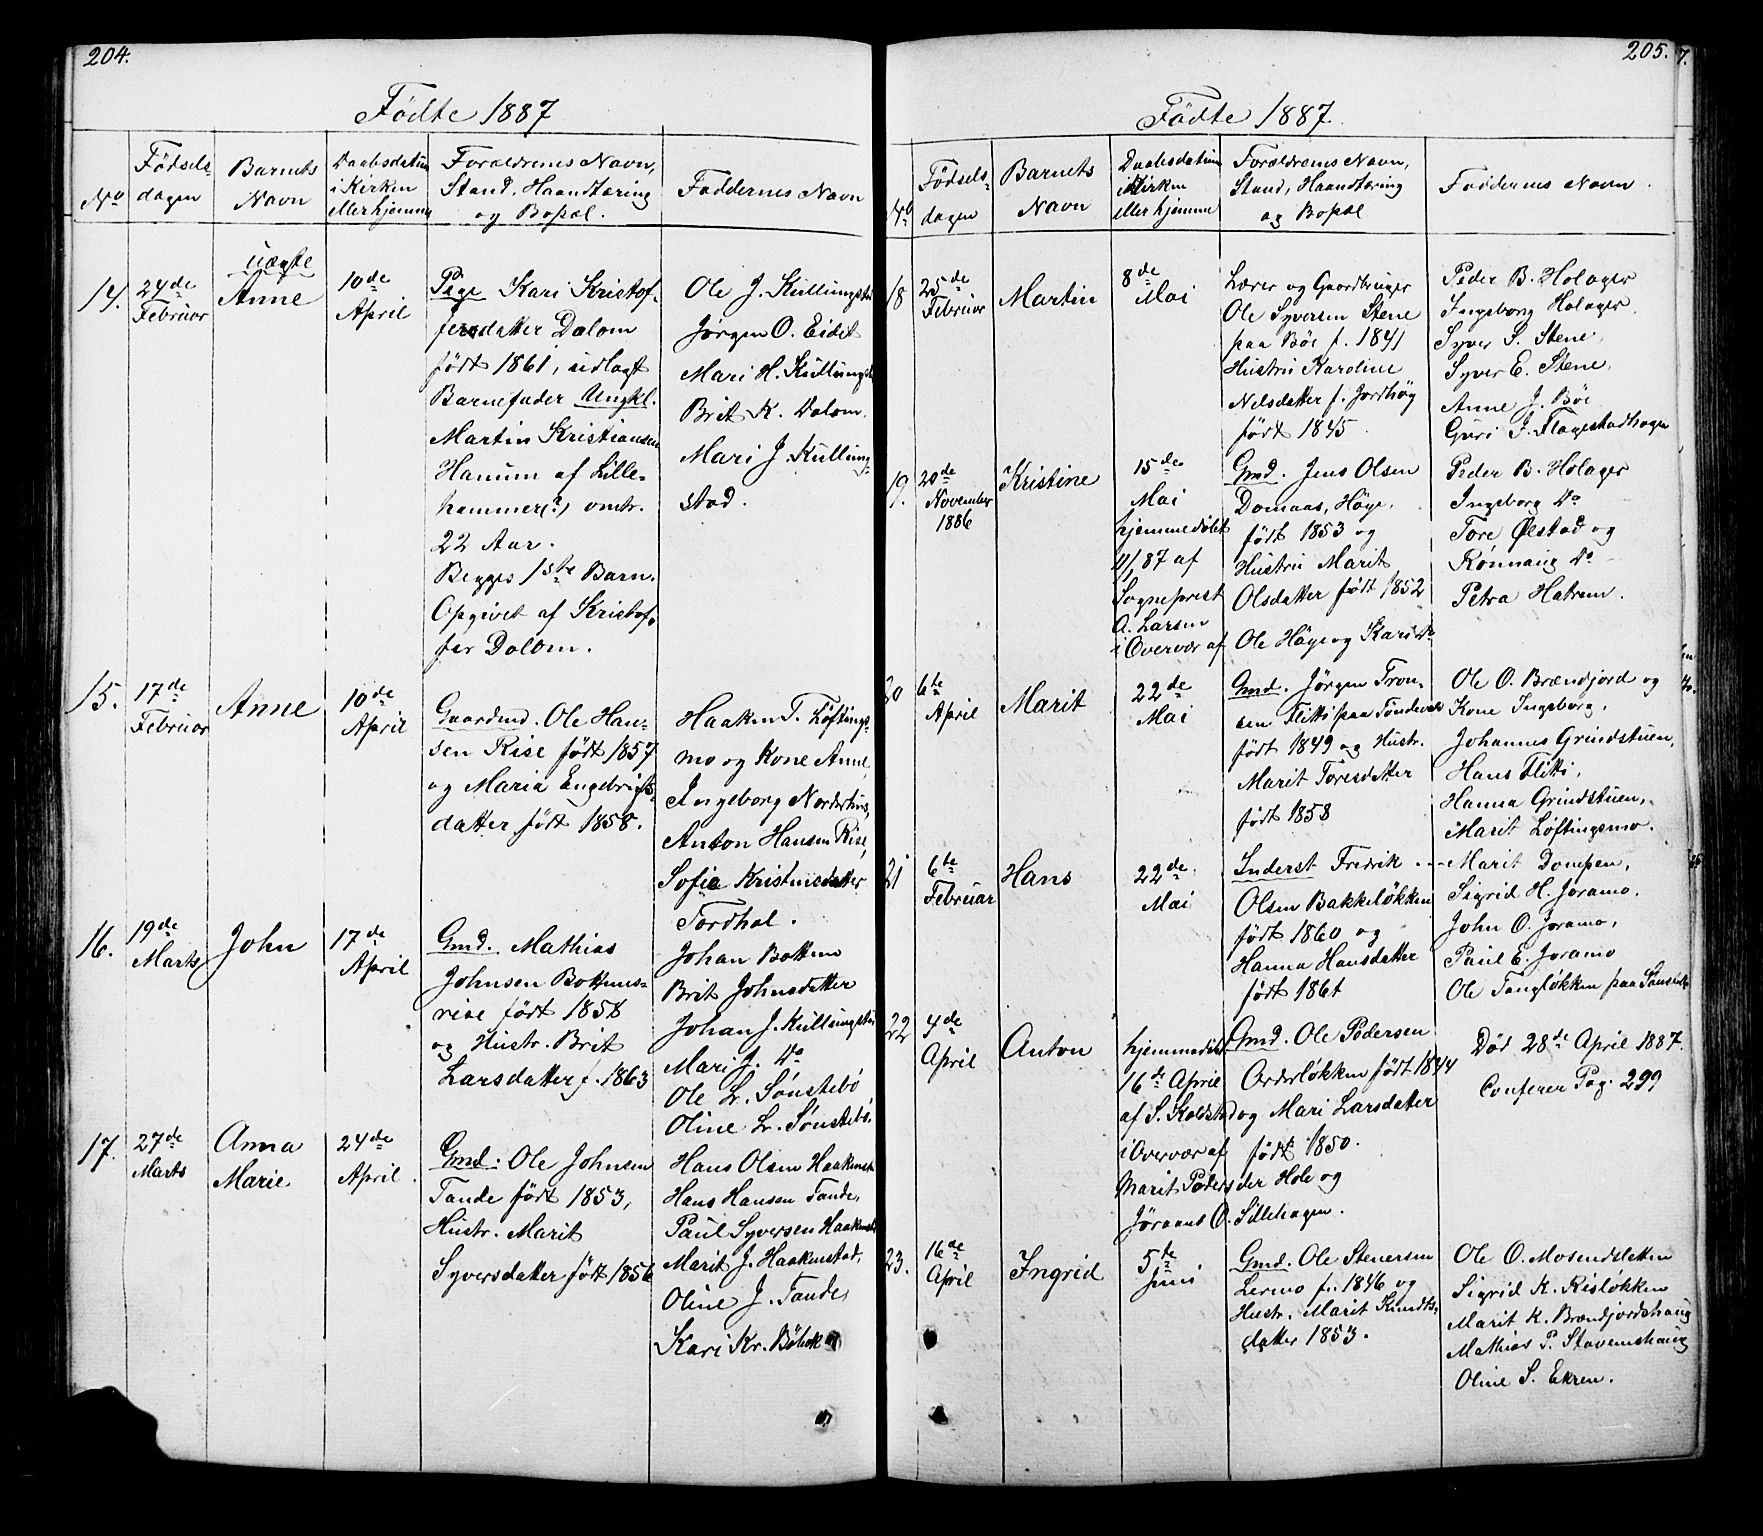 204.
Fødte 1887
No
Fødsels-
dagen
Barnets
Navn
Daabsdatum
i Kirken
eller hjemme
Forældrenes Navn,
Stand, Haandtæring
og Bopæl.
Faddernes Navn
14.
24de
Februar
uægte
Anne
10de
April
Pige Kari Kristof-
fersdatter Dalom
født 1861, udlagt
Barnefader Ungkl.
Martin Kristiansen
Hanum af Lille-
hammer(?) omtr.
22 Aar.
Begges 1ste Barn.
Opgivet af Kristof-
fer Dalom.
Ole J. Kullungsta
Jørgen O. Eidet
Mari H. Kullungs
Brit K. Dalom,
Mari J. Kullung-
stad.
15.
17de
Februar
Anne
10de
April
Gaardmd. Ole Han-
sen Rise født 1857
og Maria Engebrigts-
datter født 1858.
Haaken T. Løftings-
mo og Kone Anne,
Ingeborg Norderhus,
Anton Hansen Rise,
Sofie Kristinsdatter
Tordhol.
16.
19de
Marts
John
17de
April
Gmd. Mathias
Johnsen Bottens-
rise født 1858
og Hustr. Brit
Larsdatter f. 1863
Johan Botten
Brit Johnsdatter
Johan J. Kullungsta
Mari J. Do
Ole L. Sønstebö
Oline L. Sønstebö.
17.
27de
Marts
Anna
Marie
24de
April.
Gmd. Ole Johnsen
Tande født 1853,
Hustr. Marit
Syversdatter født 1856
Hans Olsen Haakensta
Hans Hansen Tande,
Paul Syversen Haakensta
Marit J. Haakenstad,
Oline J. Tande,
Kari Kr.
205.
Fødte 1887.
No
Fødsels-
dagen
Barnets
Navn
Daabsdatum
i Kirken
eller hjemme
Forældrenes Navn,
Stand, Haandtæring
og Bopæl
Faddernes Navn.
18
25de
Februar
Martin
8de
Mai
Lærer og Gaardbruger
Ole Syversen Stene
paa Böe f. 1841
Hustru Karoline
Nilsdatter f. Jordhøy
født 1845.
Peder B. Holager
Ingeborg Holager,
Syver S. Stene,
Syver E. Stene,
Anne J. Böe
Guri J. Flagestadhagen
19.
20de
November
1886
Kristine
15de
Mai
hjemmedøbt
/87 af
Sogneprest
A. Larsen
i Overvær af
Gmd. Jens Olsen
Domaas, Høge,
født 1853 og
Hustru Marit
Olsdatter født 1852
Ole Høge og Kari Do
Peder B. Holager
Ingeborg Do
Tore Ølstad og
Rønnaug Do
Petra Hatrem.
20
6te
April
Marit
22de
Mai
Gmd. Jørgen Tron-
sen Flitti paa
født 1849 og Hustr.
Marit Toresdatter
født 1858
Ole O. Brændjord og
Kone Ingeborg,
Johannes Grindstuen,
Hans Flitti,
Hanna Grindstuen,
Marit Løftingsmo.
21
6te
Februar
Hans
22de
Mai
Inderst Fredrik
Olsen Bakkeløkken
født 1860 og
Hanna Hansdatter
født 1861
Marit Dompen,
Sigrid H. Joramo,
John O. Joramo,
Paul E. Joramo
Ole Tangløkken paa
22
4de
April
Anton
hjemmedøbt
16de April
af S. Kolstad
i Overvær af
Marit Peders der Hole og
Jöraand O. Sillehagen.
Gmd. Ole Pedersen
Orderløkken født 1844
og Mari Larsdatter
født 1850.
Død 28de April 1887.
Conferer Pag. 299
23.
16de
April
Ingrid
5te
Juni
Gmd. Ole Stenersen
Lermo f. 1846 og
Hustr. Marit Knudts-
datter 1853.
Ole O. Mosendsletten
Sigrid K. Risløkken
Marit K. Brændjordshaug
Mathias P. Stavemshaug
Oline S. Ekren.